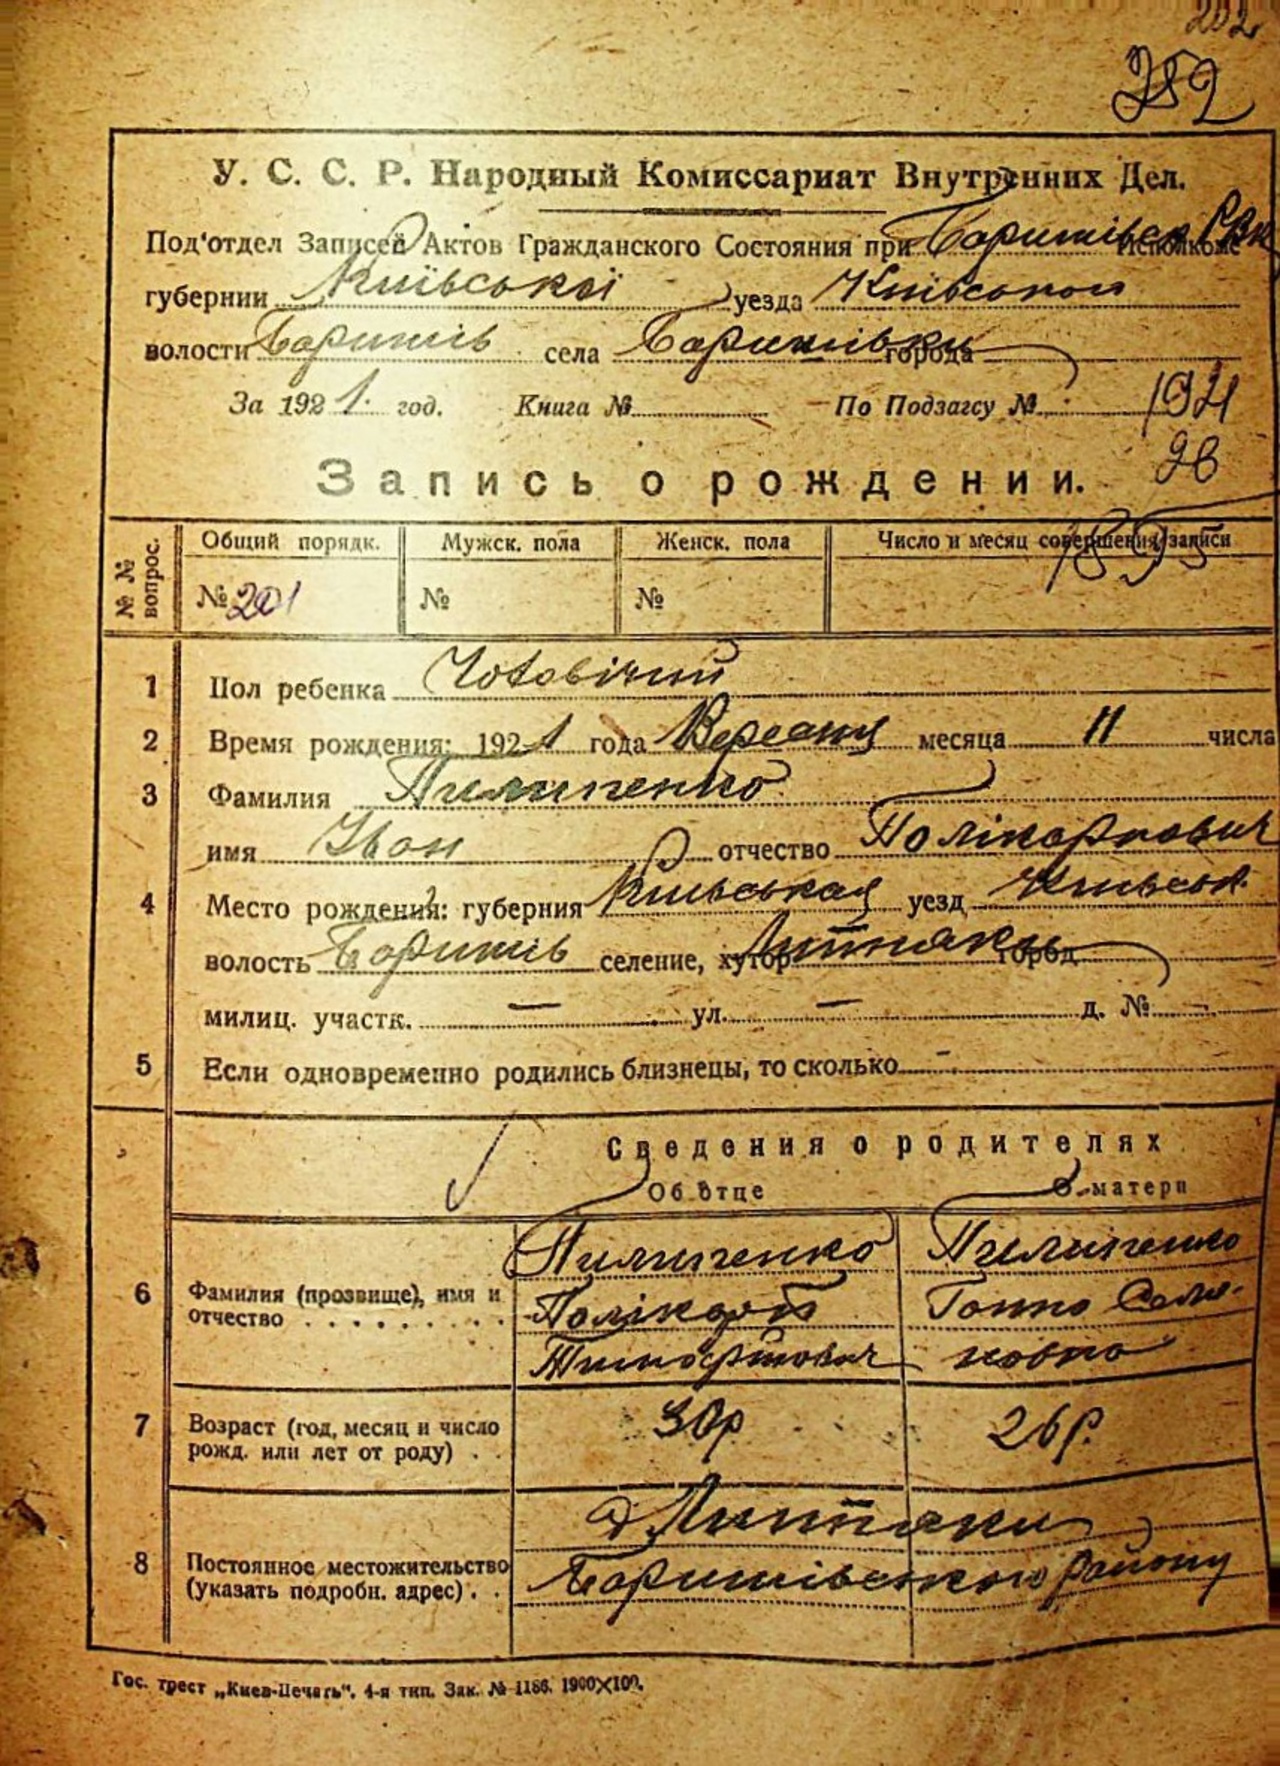 202
252
У. С. С. Р. Народный Комиссариат Внутренних Дел.
Под'отдел Записей Актов Гражданского Состояния при Баришівск РВК Исполкоме
губернии Київської уезда Київського
волости Баришів села Баришівки города
За 1921. год. Книга № По Подзагсу № 1921
Запись о рождении. 28
№№ вопрос. Общий порядк. Мужск. пола Женск. пола Число и месяц совершения записи
№ 201 № № 1895
1 Пол ребенка Чоловічий
2 Время рождения: 1921 года Вересня месяца 11 числа
3 Фамилия Пилипенко
имя Іван отчество Полікарпович
4 Место рождения: губерния Київськая уезд Київськ.
волость Баришів селение, хутор Литняки город
милиц. участк. — ул. — д. № —
5 Если одновременно родились близнецы, то сколько -
Сведения о родителях
Об отце О матери
6 Фамилия (прозвище), имя и отчество Пилипенко Пилипенко
Полікарп Ганна
7 Возраст (год, месяц и число рожд. или лет от роду) 30р 26р.
8 Постоянное местожительство (указать подробн. адрес) Литняки
Баришівського району
Гос. трест „Киев-Печать“. 4-я тип. Зак. № 1186. 1900×100.